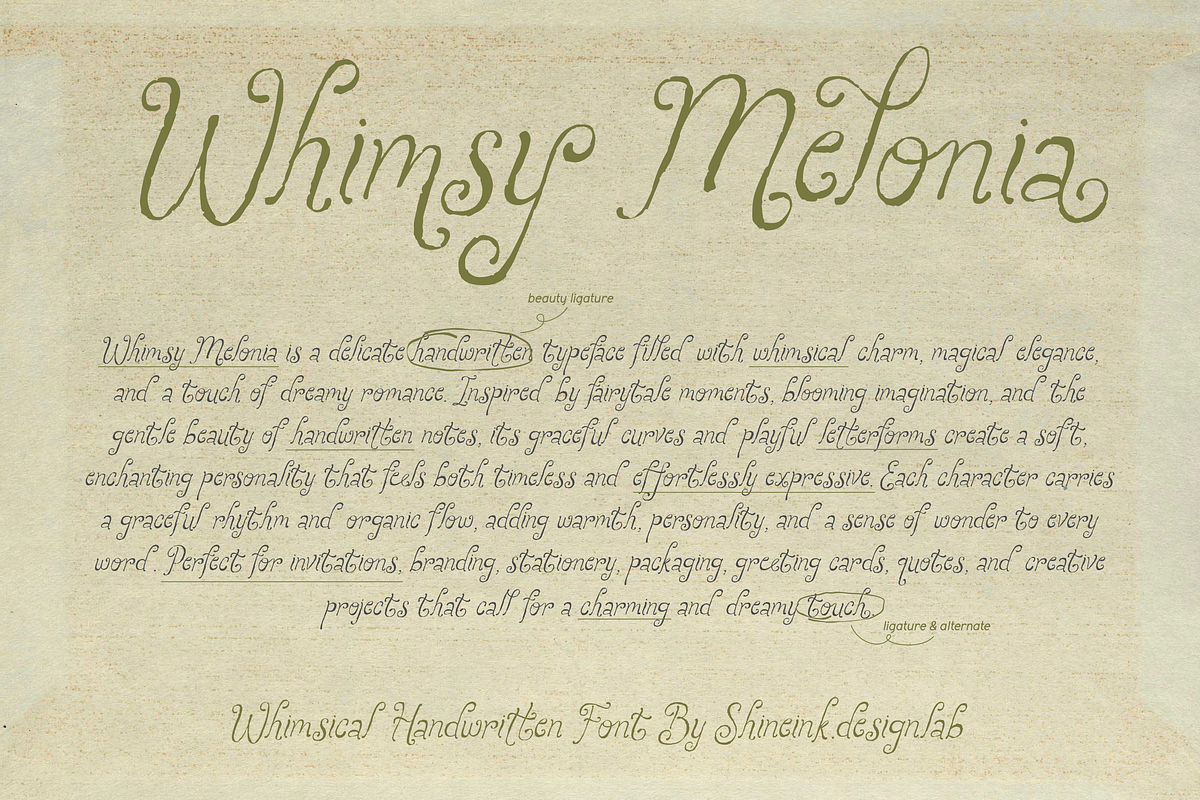 Whimsy Melonia
beauty ligature
Whimsy Melonia is a delicate handwritten typeface filled with whimsical charm, magical elegance,
and a touch of dreamy romance. Inspired by fairytale moments, blooming imagination, and the
gentle beauty of handwritten notes, its graceful curves and playful letterforms create a soft,
enchanting personality that feels both timeless and effortlessly expressive. Each character carries
a graceful rhythm and organic flow, adding warmth, personality, and a sense of wonder to every
word. Perfect for invitations, branding, stationery, packaging, greeting cards, quotes, and creative
projects that call for a charming and dreamy touch.
ligature & alternate
Whimsical Handwritten Font By Shineink.designlab